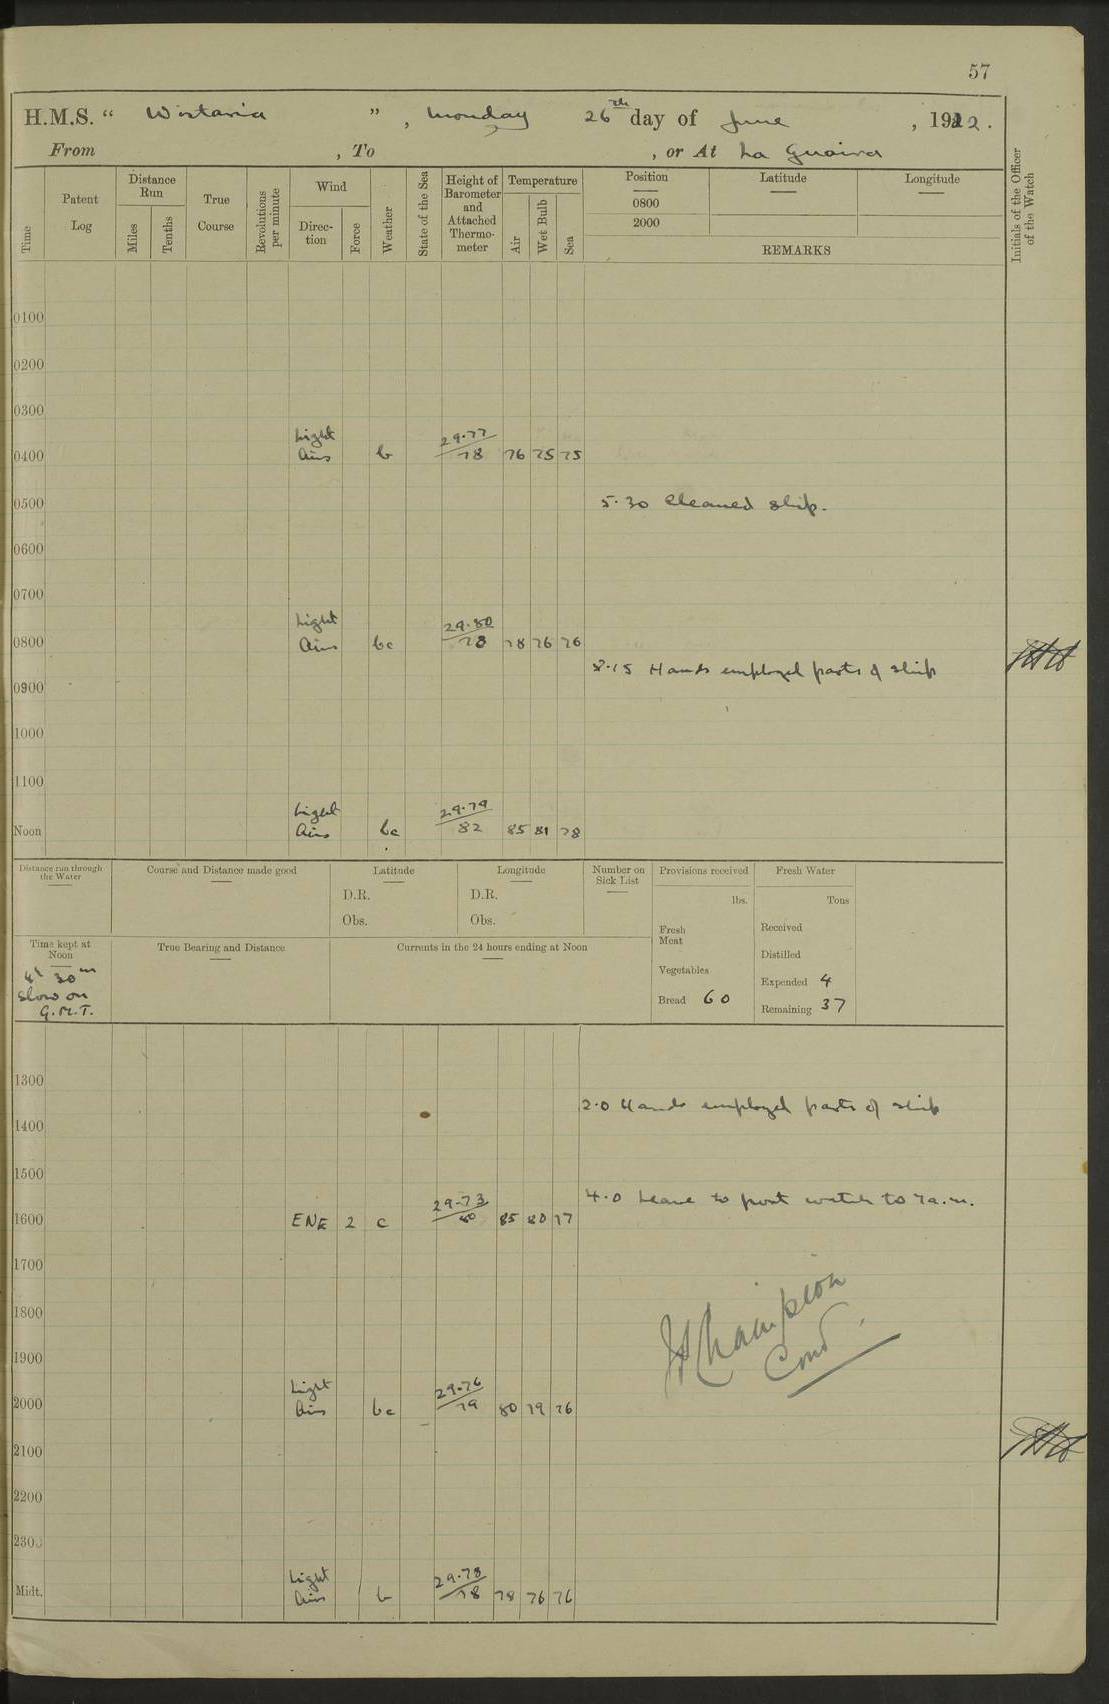 57
H.M.S. “ Wistaria ”, Monday 26th day of June, 1922.
From , To , or At La Guaira
Time
Patent Log
Distance Run
Miles
Tenths
True Course
Revolutions per minute
Wind
Direction
Force
Weather
State of the Sea
Height of Barometer and Attached Thermometer
Temperature
Air
Wet Bulb
Sea
Position Latitude Longitude
0800
2000
REMARKS
Initials of the Officer of the Watch
0100
0200
0300
Light 29.77
0400 Airs b 78 76 75 75
0500 5.30 Cleaned ship.
0600
0700
Light 29.80
0800 Airs bc 78 78 76 76
8.15 Hands employed parts of ship
0900
1000
1100
Light 29.79
Noon Airs bc 82 85 81 78
Distance run through the Water
Course and Distance made good
Latitude
D.R.
Obs.
Longitude
D.R.
Obs.
Number on Sick List
Provisions received
lbs.
Fresh Meat
Vegetables
Bread 60
Fresh Water
Tons
Received
Distilled
Expended 4
Remaining 37
Time kept at Noon
4h 30m
slow on
G.M.T.
True Bearing and Distance
Currents in the 24 hours ending at Noon
1300
2.0 Hands employed parts of ship
1400
1500
4.0 Leave to port watch to 7a.m.
29.73
1600 ENE 2 c 80 85 80 77
1700
1800
1900
Champion
Light 29.76
2000 Airs bc 79 80 79 76
2100
2200
2300
Light 29.78
Midt. Airs b 78 78 76 76